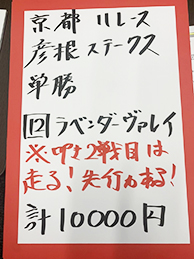 京都11レース
彦根ステークス
単勝
12 ラベンダーヴァレイ
※叩き2戦目は
走る!先行力ある!
計10000円